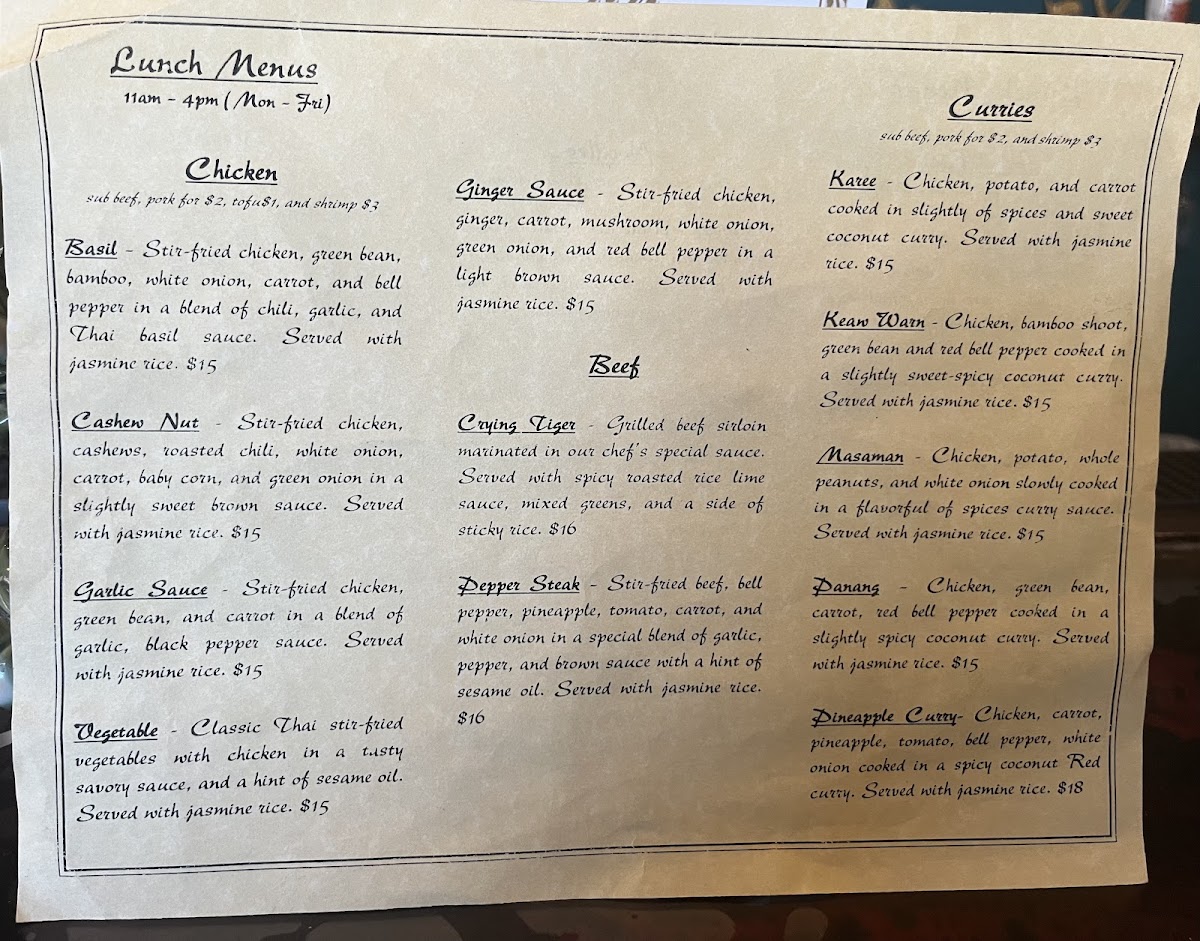 Lunch Menus
11am - 4pm ( Mon - Fri)
Chicken
sub beef, pork for $2, tofu$1, and shrimp $3
Basil - Stir-fried chicken, green bean,
bamboo, white onion, carrot, and bell
pepper in a blend of chili, garlic, and
Thai basil sauce. Served with
jasmine rice. $15
Cashew Nut - Stir-fried chicken,
cashews, roasted chili, white onion,
carrot, baby corn, and green onion in a
slightly sweet brown sauce. Served
with jasmine rice. $15
Garlic Sauce - Stir-fried chicken,
green bean, and carrot in a blend of
garlic, black pepper sauce. Served
with jasmine rice. $15
Vegetable - Classic Thai stir-fried
vegetables with chicken in a tasty
savory sauce, and a hint of sesame oil.
Served with jasmine rice. $15
Ginger Sauce - Stir-fried chicken,
ginger, carrot, mushroom, white onion,
green onion, and red bell pepper in a
light brown sauce. Served with
jasmine rice. $15
Beef
Crying Tiger - Grilled beef sirloin
marinated in our chef's special sauce.
Served with spicy roasted rice lime
sauce, mixed greens, and a side of
sticky rice. $16
Pepper Steak - Stir-fried beef, bell
pepper, pineapple, tomato, carrot, and
white onion in a special blend of garlic,
pepper, and brown sauce with a hint of
sesame oil. Served with jasmine rice.
$16
Curries
sub beef, pork for $2, and shrimp $3
Karee - Chicken, potato, and carrot
cooked in slightly of spices and sweet
coconut curry. Served with jasmine
rice. $15
Keaw Warn - Chicken, bamboo shoot,
green bean and red bell pepper cooked in
a slightly sweet-spicy coconut curry.
Served with jasmine rice. $15
Masaman - Chicken, potato, whole
peanuts, and white onion slowly cooked
in a flavorful of spices curry sauce.
Served with jasmine rice. $15
Panang - Chicken, green bean,
carrot, red bell pepper cooked in a
slightly spicy coconut curry. Served
with jasmine rice. $15
Pineapple Curry- Chicken, carrot,
pineapple, tomato, bell pepper, white
onion cooked in a spicy coconut Red
curry. Served with jasmine rice. $18